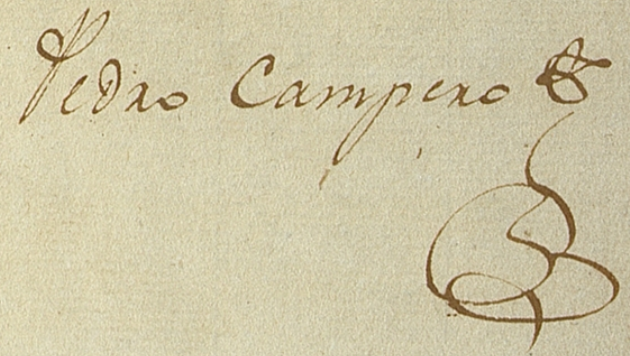 Pedro Campero